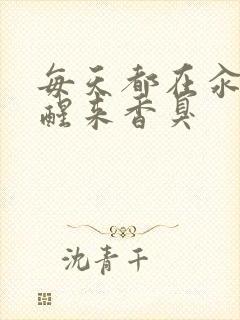 每天都在汆
醒来香臭
沈青千